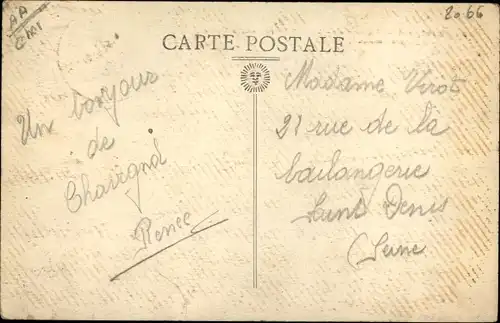 AA
2066
CARTE POSTALE
Un bonjour
de
Chavignol
Renée
Madame Virot
21 rue de la
boulangerie
Saint Denis
(Seine